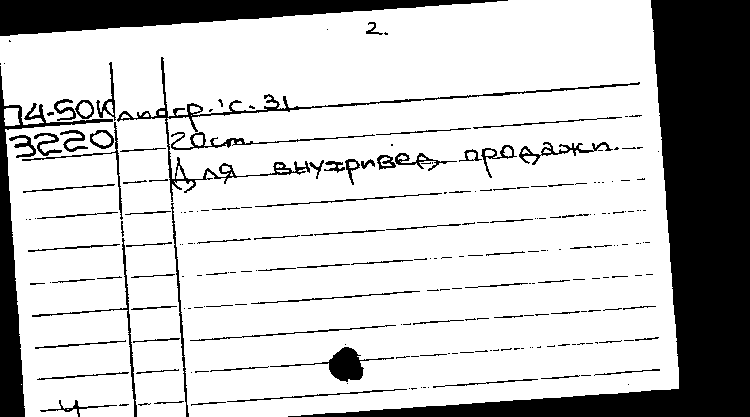 2.
74-50К литогр. 'С. 31.
3220 20 cm.
Для внутривед. продажи.
ч